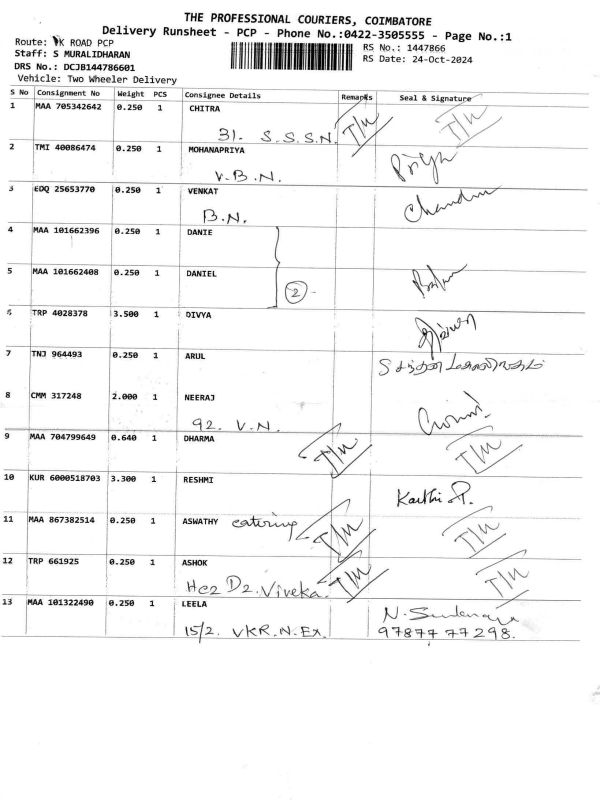 THE PROFESSIONAL COURIERS, COIMBATORE
Delivery Runsheet - PCP - Phone No.:0422-3505555 - Page No.:1
Route: K ROAD PCP
RS No.: 1447866
Staff: S MURALIDHARAN
RS Date: 24-Oct-2024
DRS No.: DCJB144786601
Vehicle: Two Wheeler Delivery
S No Consignment No Weight PCS Consignee Details Remarks Seal & Signature
1 MAA 705342642 0.250 1 CHITRA
31. S.S.S.N. I/N I/N
2 TMI 40086474 0.250 1 MOHANAPRIYA Priya
V.B.N.
3 EDQ 25653770 0.250 1 VENKAT
B.N.
4 MAA 101662396 0.250 1 DANIE
5 MAA 101662408 0.250 1 DANIEL
2
6 TRP 4028378 3.500 1 DIVYA
7 TNJ 964493 0.250 1 ARUL
8 CMM 317248 2.000 1 NEERAJ
92. V.N.
9 MAA 704799649 0.640 1 DHARMA I/N I/N
10 KUR 6000518703 3.300 1 RESHMI
Karthi P.
11 MAA 867382514 0.250 1 ASWATHY catering I/N I/N
12 TRP 661925 0.250 1 ASHOK I/N I/N
D2. Viveka.
13 MAA 101322490 0.250 1 LEELA N.
15/2. VKR.N.Ex. 97877 77298.